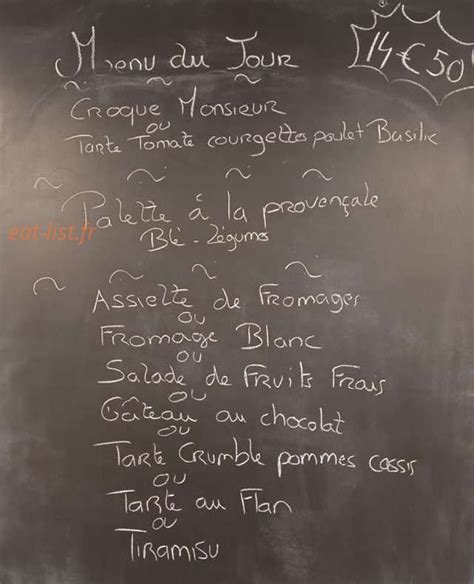 Menu du Jour
14€50
Croque Monsieur
ou
Tarte Tomate courgettes poulet Basilic
Palette à la provençale
eat-list.fr
Blé - Légumes
Assiette de Fromages
ou
Fromage Blanc
ou
Salade de Fruits Frais
ou
Gâteau au chocolat
ou
Tarte Crumble pommes cassis
ou
Tarte au Flan
ou
Tiramisu